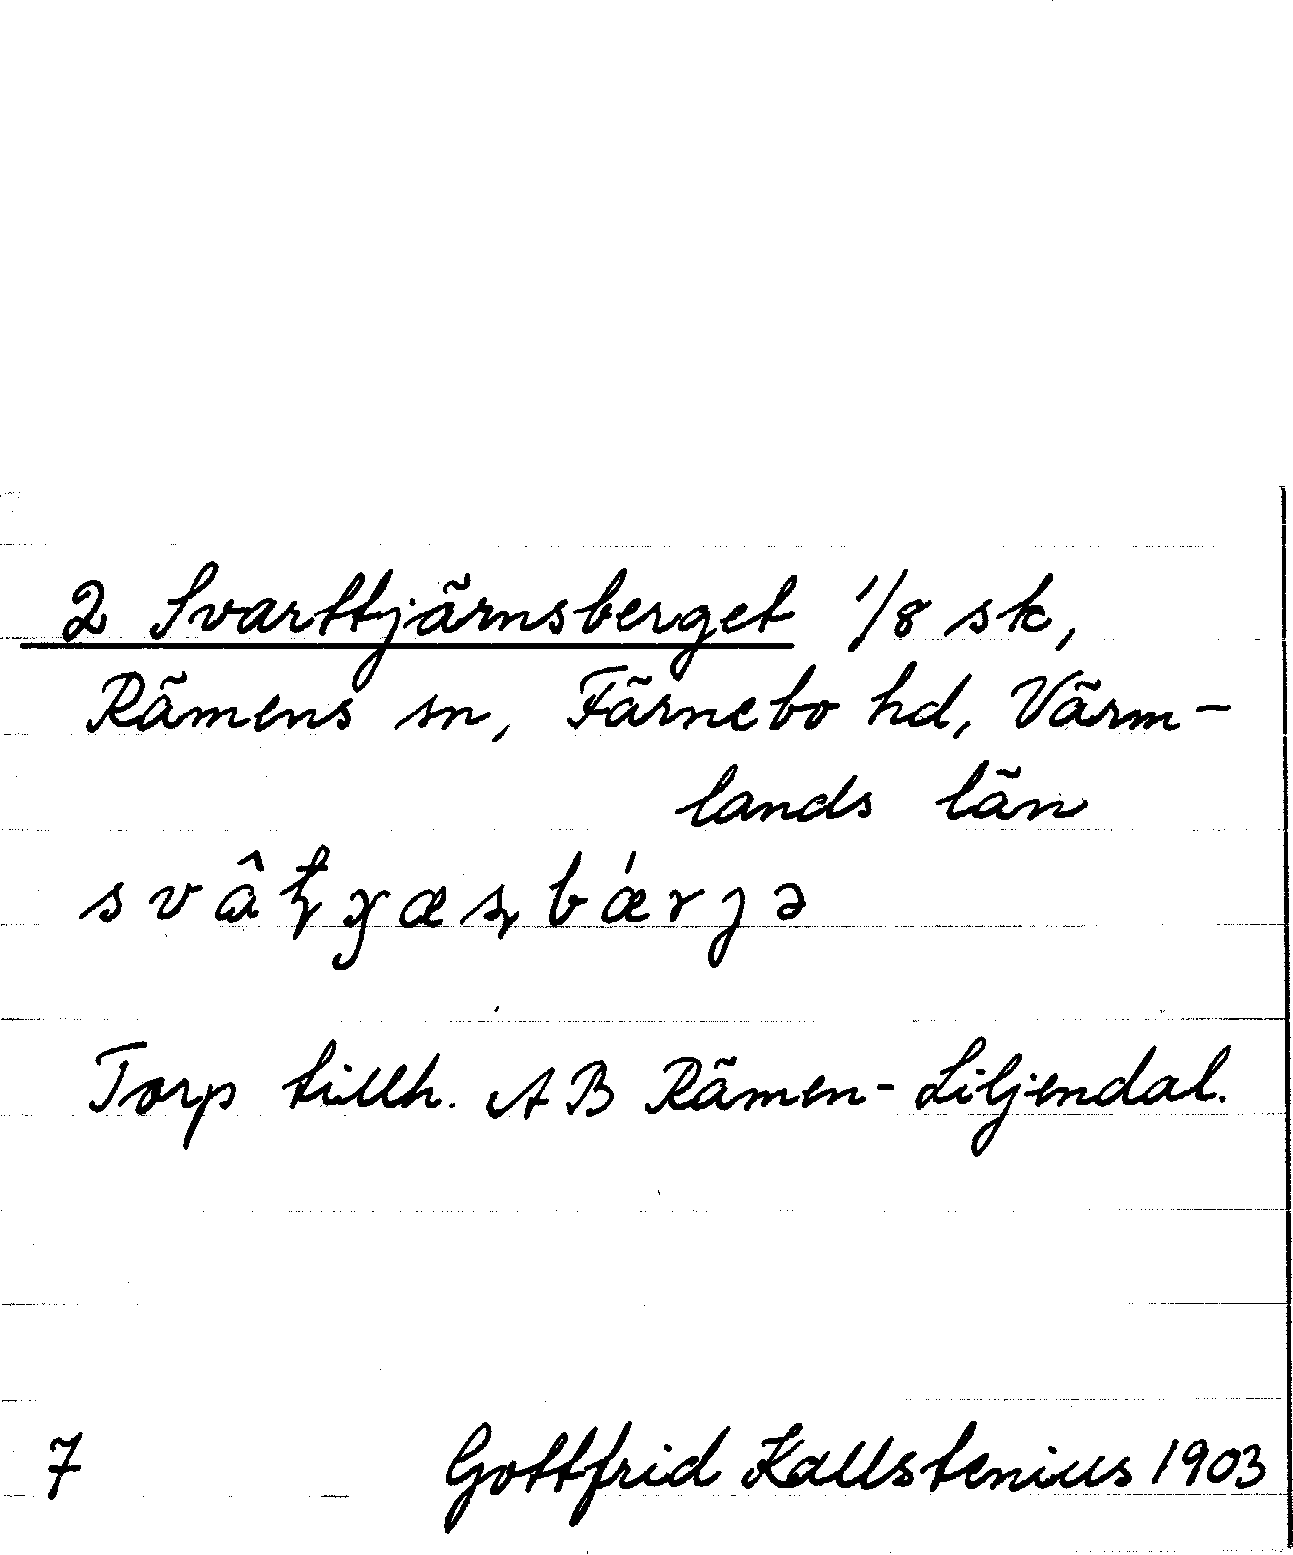 2 Svarttjärnsberget 1/8 sk,
Rämens sn, Färnebo hd, Värm-
lands län
Torp tillh. AB Rämen-Liljendal.
7 Gottfrid Kallstenius 1903